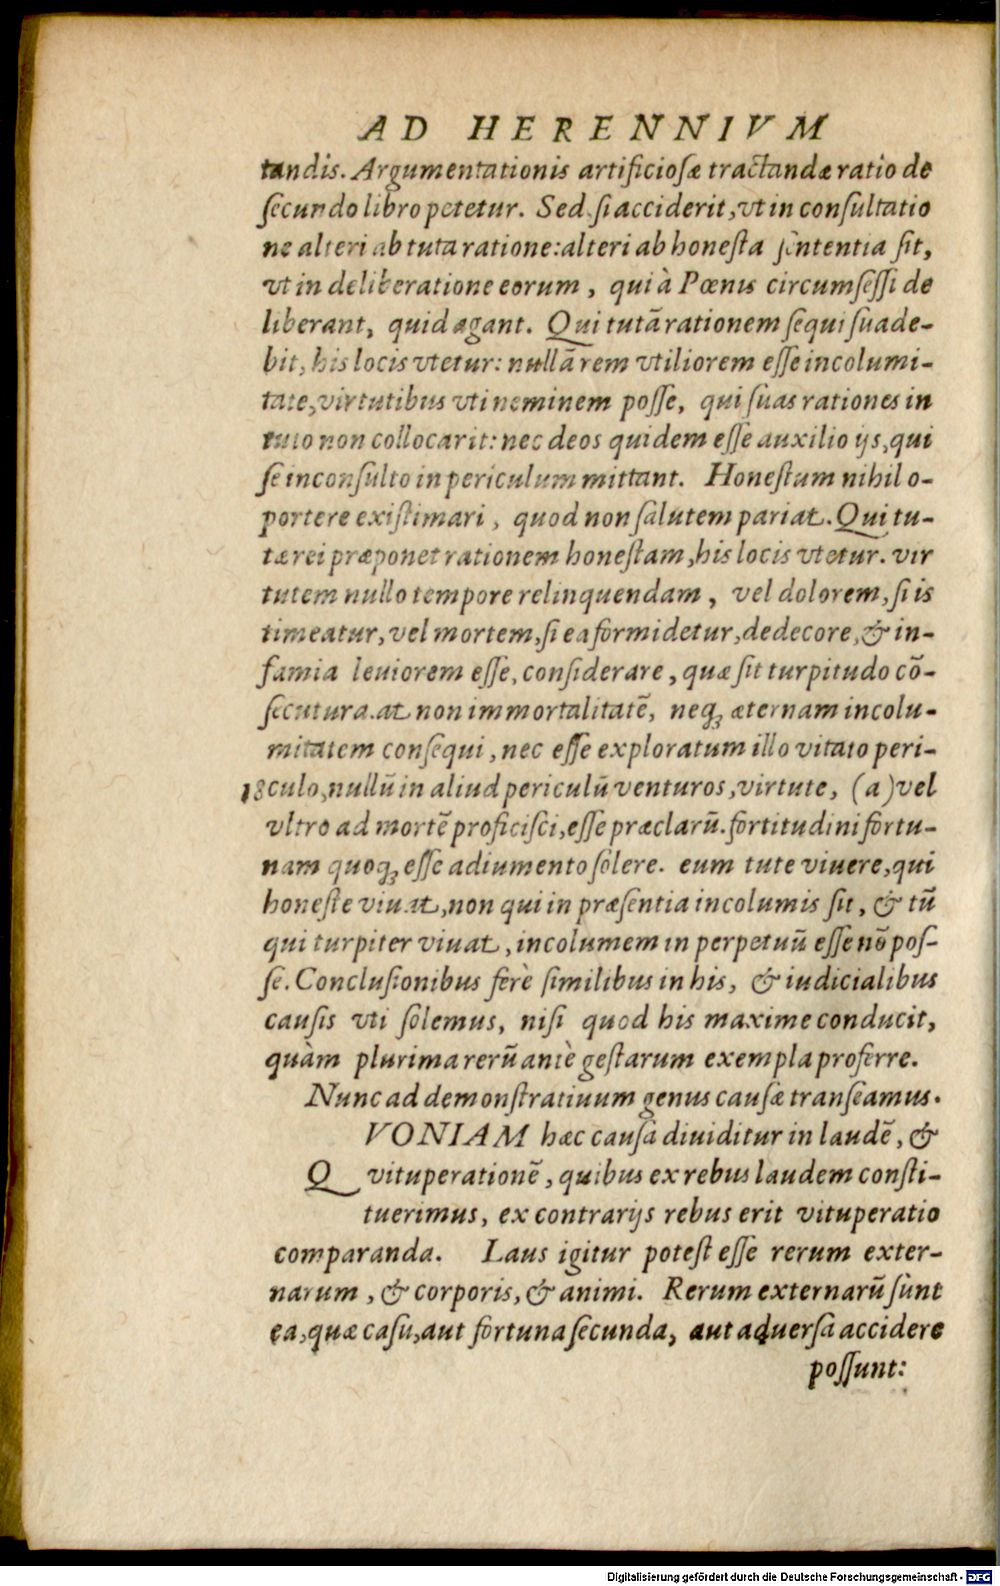 AD HERENNIVM
tandis. Argumentationis artificioſæ tractandæ ratio de
ſecundo libro petetur. Sed ſi acciderit, vt in conſultatio
ne alteri ab tuta ratione: alteri ab honeſta ſententia ſit,
vt in deliberatione eorum, qui à Pœnis circumſeſſi de
liberant, quid agant. Qui tutā rationem ſequi ſuade-
bit, his locis vtetur: nullā rem vtiliorem eſſe incolumi-
tate, virtutibus vti neminem poſſe, qui ſuas rationes in
tuto non collocarit: nec deos quidem eſſe auxilio ijs, qui
ſe inconſulto in periculum mittant. Honeſtum nihil o-
portere exiſtimari, quod non ſalutem pariat. Qui tu-
tæ rei præponet rationem honeſtam, his locis vtetur. vir
tutem nullo tempore relinquendam, vel dolorem, ſi is
timeatur, vel mortem, ſi ea formidetur, dedecore, & in-
famia leuiorem eſſe, conſiderare, quæ ſit turpitudo cō-
ſecutura. at non immortalitatē, neq; æternam incolu-
mitatem conſequi, nec eſſe exploratum illo vitato peri-
18 culo, nullū in aliud periculū venturos, virtute, (a) vel
vltro ad mortē proficiſci, eſſe præclarū. fortitudini fortu-
nam quoq; eſſe adiumento ſolere. eum tute viuere, qui
honeſte viuat, non qui in præſentia incolumis ſit, & tū
qui turpiter viuat, incolumem in perpetuū eſſe nō poſ-
ſe. Concluſionibus ferè ſimilibus in his, & iudicialibus
cauſis vti ſolemus, niſi quod his maxime conducit,
quàm plurima rerū antè geſtarum exempla proferre.
Nunc ad demonſtratiuum genus cauſæ tranſeamus.
VONIAM hæc cauſa diuiditur in laudē, &
Q vituperationē, quibus ex rebus laudem conſti-
tuerimus, ex contrarijs rebus erit vituperatio
comparanda. Laus igitur poteſt eſſe rerum exter-
narum, & corporis, & animi. Rerum externarū ſunt
ea, quæ caſu, aut fortuna ſecunda, aut aduerſa accidere
poſſunt:
Digitalisierung gefördert durch die Deutsche Forschungsgemeinschaft - DFG